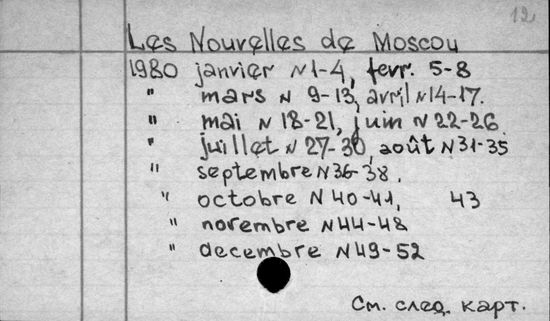 12
Les Nouvelles de Moscou
1980 janvier N1-4, fevr. 5-8
" mars N 9-13, avril N14-17.
" mai N 18-21, juin N 22-26
" juillet N 27-30, août N31-35
" septembre N36-38.
" octobre N 40-41, 43
" novembre N44-48
" decembre N49-52
См. след. карт.